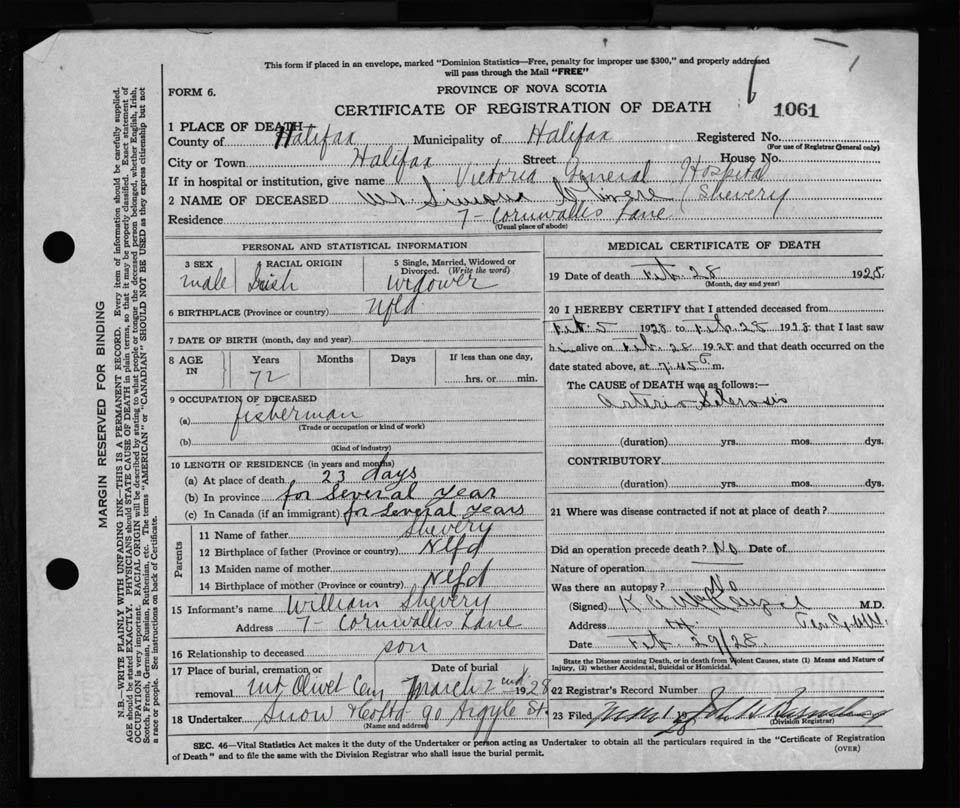 This form if placed in an envelope, marked "Dominion Statistics—Free, penalty for improper use $300," and properly addressed
will pass through the Mail "FREE"
FORM 6.
PROVINCE OF NOVA SCOTIA
CERTIFICATE OF REGISTRATION OF DEATH
1061
1 PLACE OF DEATH
County of Halifax Municipality of Halifax Registered No.
(For use of Registrar General only)
City or Town Halifax Street House No.
If in hospital or institution, give name Victoria General Hospital
2 NAME OF DECEASED Shevery
Residence 7 - Cornwallis Lane
(Usual place of abode)
PERSONAL AND STATISTICAL INFORMATION
3 SEX male
4 RACIAL ORIGIN Irish
5 Single, Married, Widowed or Divorced. (Write the word) Widower
6 BIRTHPLACE (Province or country) Nfld
7 DATE OF BIRTH (month, day and year)
8 AGE IN Years 72 Months Days If less than one day, hrs. or min.
9 OCCUPATION OF DECEASED
(a) fisherman
(Trade or occupation or kind of work)
(b)
(Kind of industry)
10 LENGTH OF RESIDENCE (in years and months)
(a) At place of death 23 days
(b) In province for Several Year
(c) In Canada (if an immigrant) for Several Years
Parents
11 Name of father Shevery
12 Birthplace of father (Province or country) Nlfd
13 Maiden name of mother
14 Birthplace of mother (Province or country) Nlfd
15 Informant's name William Shevery
Address 7 - Cornwallis Lane
16 Relationship to deceased son
17 Place of burial, cremation or removal Mt Olivet Cem Date of burial March 2nd 1928
18 Undertaker Snow & Co Ltd 90 Argyle St.
(Name and address)
MEDICAL CERTIFICATE OF DEATH
19 Date of death Feb. 28 1928
(Month, day and year)
20 I HEREBY CERTIFY that I attended deceased from
Feb. 5 1928 to Feb. 28 1928 that I last saw
him alive on Feb. 28 1928 and that death occurred on the
date stated above, at 7.45 P m.
The CAUSE of DEATH was as follows:—
Arterio Sclerosis
(duration) yrs. mos. dys.
CONTRIBUTORY.
(duration) yrs. mos. dys.
21 Where was disease contracted if not at place of death?
Did an operation precede death? No Date of
Nature of operation
Was there an autopsy? No
(Signed) M.D.
Address
Date Feb. 29/28.
State the Disease causing Death, or in death from Violent Causes, state (1) Means and Nature of
Injury, (2) whether Accidental, Suicidal or Homicidal.
22 Registrar's Record Number
23 Filed
(Division Registrar)
SEC. 46—Vital Statistics Act makes it the duty of the Undertaker or person acting as Undertaker to obtain all the particulars required in the "Certificate of Registration
of Death" and to file the same with the Division Registrar who shall issue the burial permit.
(OVER)
MARGIN RESERVED FOR BINDING
N.B.—WRITE PLAINLY WITH UNFADING INK—THIS IS A PERMANENT RECORD. Every item of information should be carefully supplied.
AGE should be stated EXACTLY. PHYSICIANS should STATE CAUSE OF DEATH in plain terms, so that it may be properly classified. Exact statement of
OCCUPATION is very important. RACIAL ORIGIN will be described by stating to what people or tongue the deceased person belonged, whether English, Irish,
Scotch, French, German, Russian, Ruthenian, etc. The terms "AMERICAN" or "CANADIAN" SHOULD NOT BE USED as they express citizenship but not
a race or people. See instructions on back of Certificate.